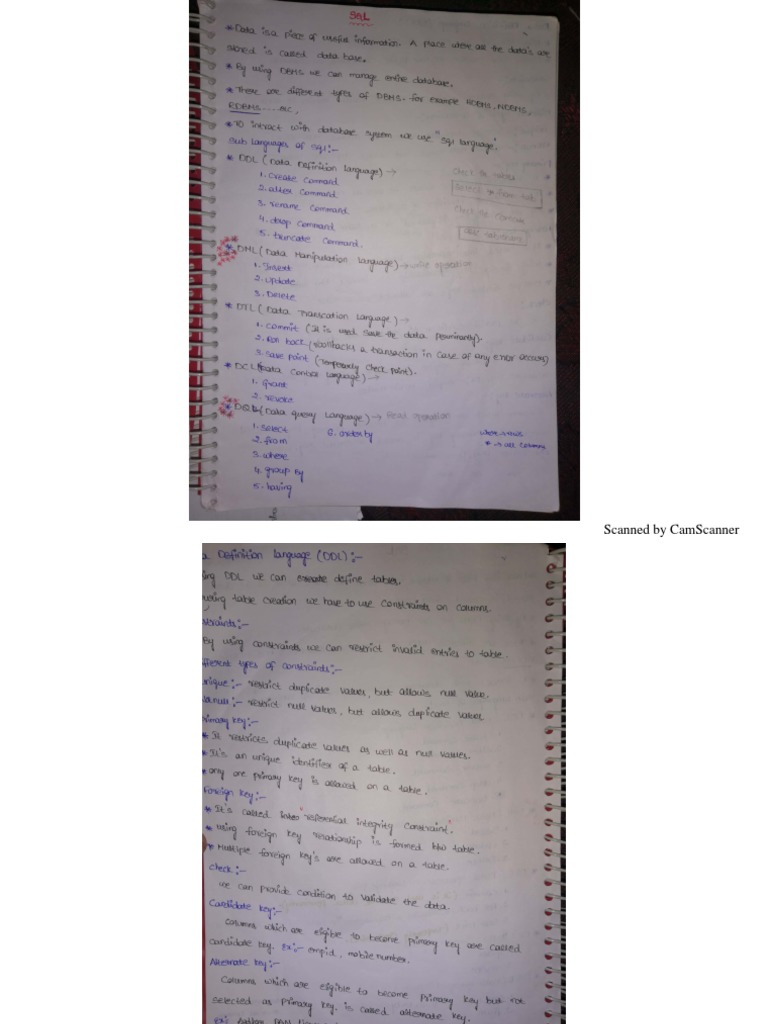 SQL
* Data is a piece of useful information. A place where all the data's are
stored is called data base.
* By using DBMS we can manage entire database.
* There are different types of DBMS. for example HDBMS, NDBMS,
RDBMS.....etc,
* To intract with database system we use "Sql language".
Sub languages of sql:-
* DDL (Data Definition Language) →
1. Create Command
2. alter Command
3. rename Command
4. drop Command
5. truncate Command.
Check the
Select * from
Check the
* DML (Data Manipulation Language) → write operation
1. Insert
2. Update
3. Delete
* DTL (Data Transcation Language) →
1. Commit (It is used save the data
2. Roll back (Roollbacks a transaction in case of any error occurs)
3. Save point (Temporarily check point).
* DCL (Data Control Language) →
1. grant
2. revoke
* DQL (Data query Language) → Read operation
1. Select
6. order by
2. from
3. where
4. group By
5. having
* → all columns
Scanned by CamScanner
Definition Language (DDL):-
DDL we can create define tables
table creation we have to use Constraints on columns
By using constraints we can restrict invalid entries to table.
types of constraints:-
restrict duplicate values, but allows null value.
restrict null values, but allows duplicate values
key:-
* It restricts duplicate values as well as null values.
* It's an unique identifier of a table.
* only one primary key is allowed on a table.
Foreign key:-
* It's called "referential integrity constraint".
* using foreign key relationship is formed b/w table.
* Multiple foreign key's are allowed on a table.
Check:-
we can provide condition to validate the data.
Candidate key:-
Columns which are eligible to become primary key are called
candidate key. ex:- empid, mobile number.
Alternate key:-
Columns which are eligible to become primary key but not
selected as primary key. is called alternate key.